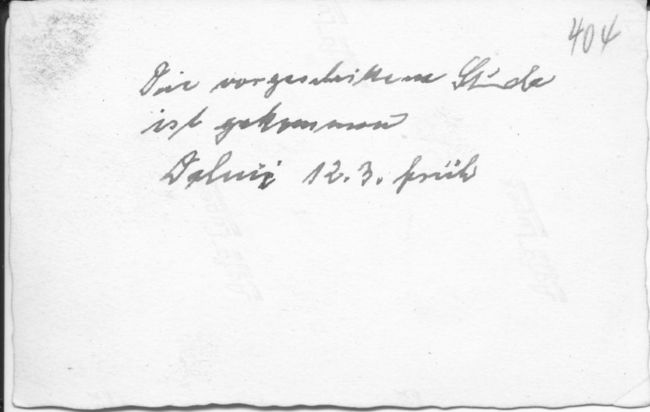 404
Die vorgeschrittene Stunde
ist gekommen
12.3. früh